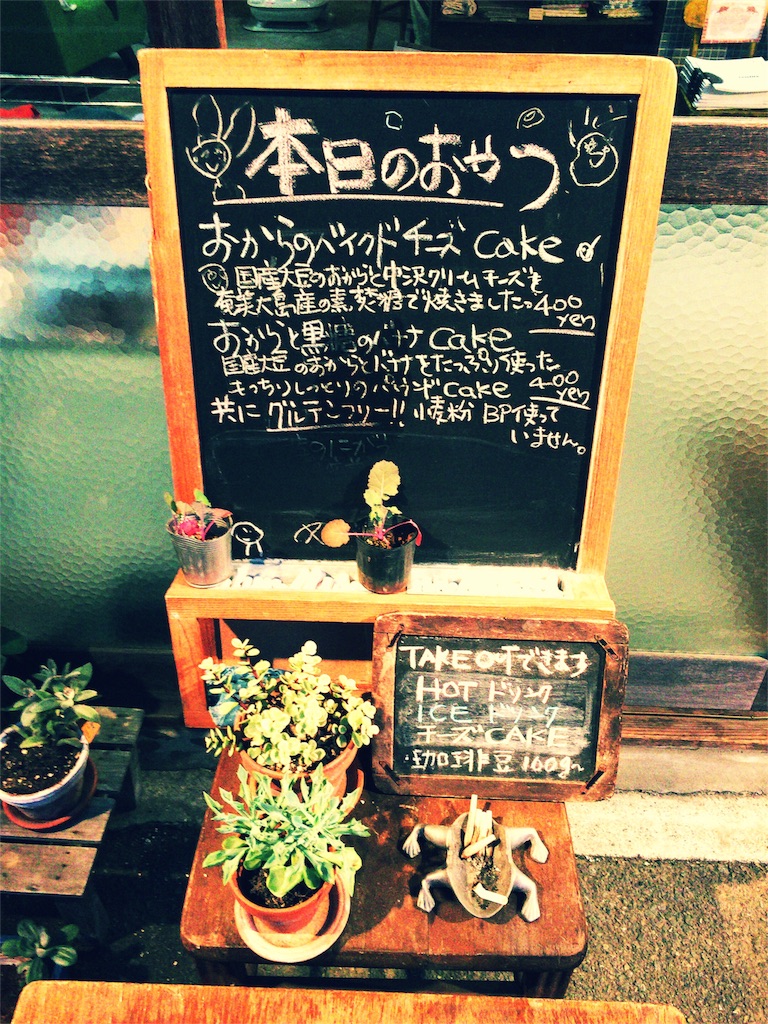 本日のおやつ
おからのベイクドチーズ cake
国産大豆のおからと中沢クリームチーズを
奄美大島産の素焚糖で焼きましたっ 400
yen
おからと黒糖のバナナ cake
国産大豆のおからとバナナをたっぷり使った
もっちりしっとりのパウンドcake 400
yen
共に グルテンフリー!! 小麦粉 BP使って
いません。
TAKE OUTできます
HOT ドリンク
ICE ドリンク
チーズCAKE
珈琲豆 100g~